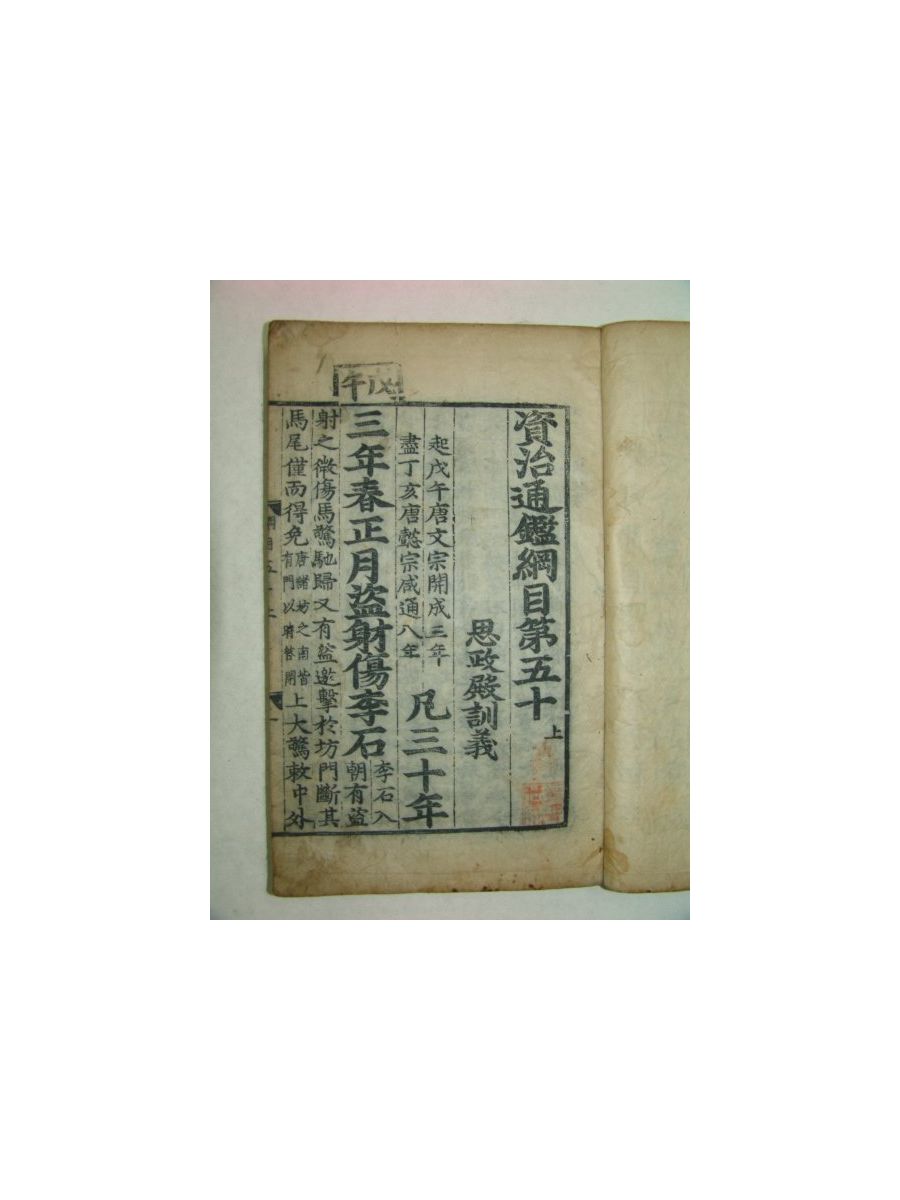 資治通鑑綱目第五十上
思政殿訓義
起戊午唐文宗開成三年
盡丁亥唐懿宗咸通八年
凡三十年
戊午
三年春正月盜射傷李石李石入朝有盜
射之微傷馬驚馳歸又有盜邀擊於坊門斷其
馬尾僅而得免唐諸坊之南皆有門以時啓閉上大驚敕中外